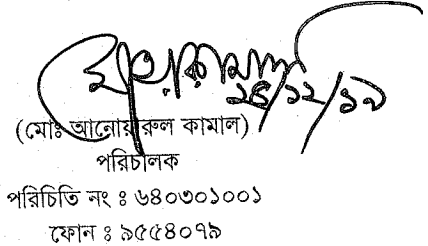 ২৪/১২/১৯
(মোঃ আনোয়ারুল কামাল)
পরিচালক
পরিচিতি নং ঃ ৬৪০৩০১০০১
ফোন ঃ ৯৫৫৪০৭৯